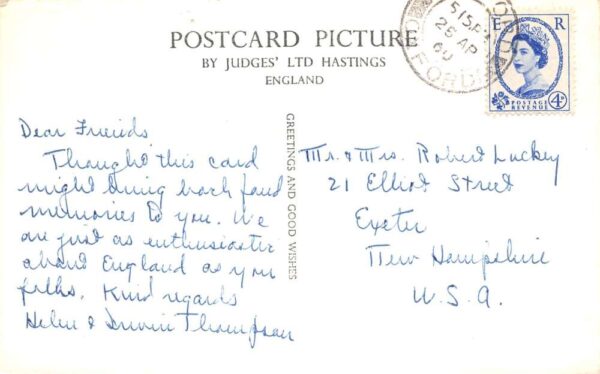 POSTCARD PICTURE
BY JUDGES' LTD HASTINGS
ENGLAND
5 15 PM
26 AP
60
OXFORD
E R
POSTAGE
REVENUE
4D
GREETINGS AND GOOD WISHES
Dear Friends
Thought this card
might bring back fond
memories to you. We
are just as enthusiastic
about England as you
folks. Kind regards
Helen & Irwin Thompson
Mr. & Mrs. Robert Luckey
21 Elliot Street
Exeter
New Hampshire
U.S.A.